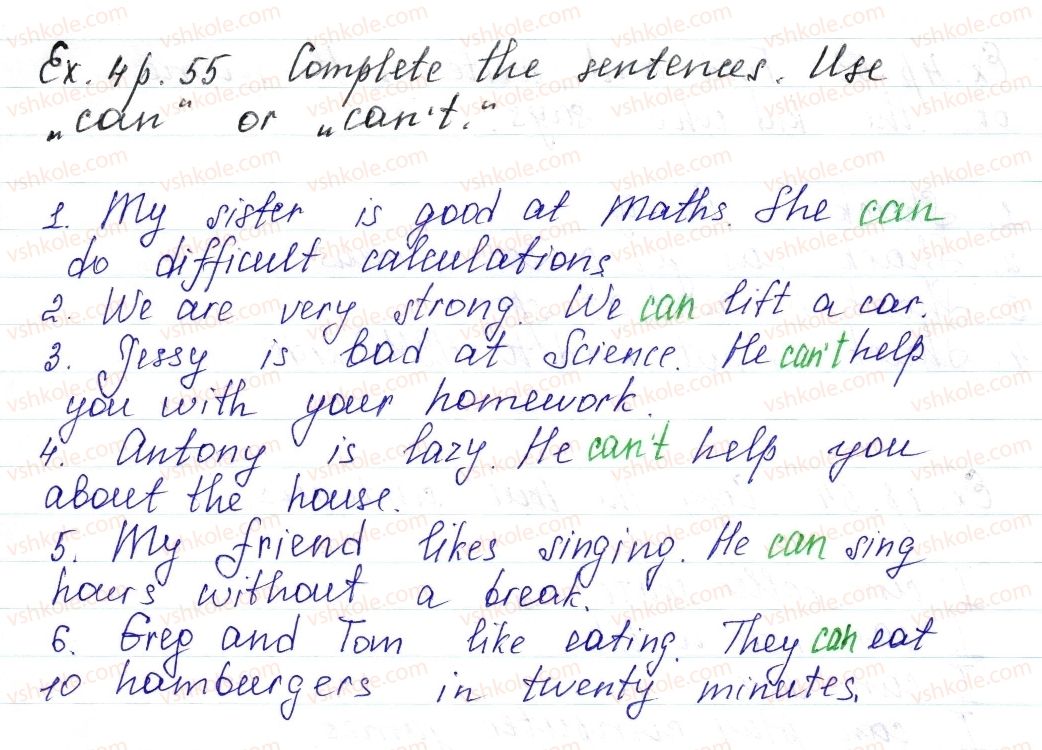 Ex. 4 p. 55 Complete the sentences. Use
„can“ or „can't.“
1. My sister is good at Maths. She can
do difficult calculations
2. We are very strong. We can lift a car.
3. Jessy is bad at Science. He can't help
you with your homework.
4. Antony is lazy. He can't help you
about the house.
5. My friend likes singing. He can sing
hours without a break.
6. Greg and Tom like eating. They can eat
10 hamburgers in twenty minutes.